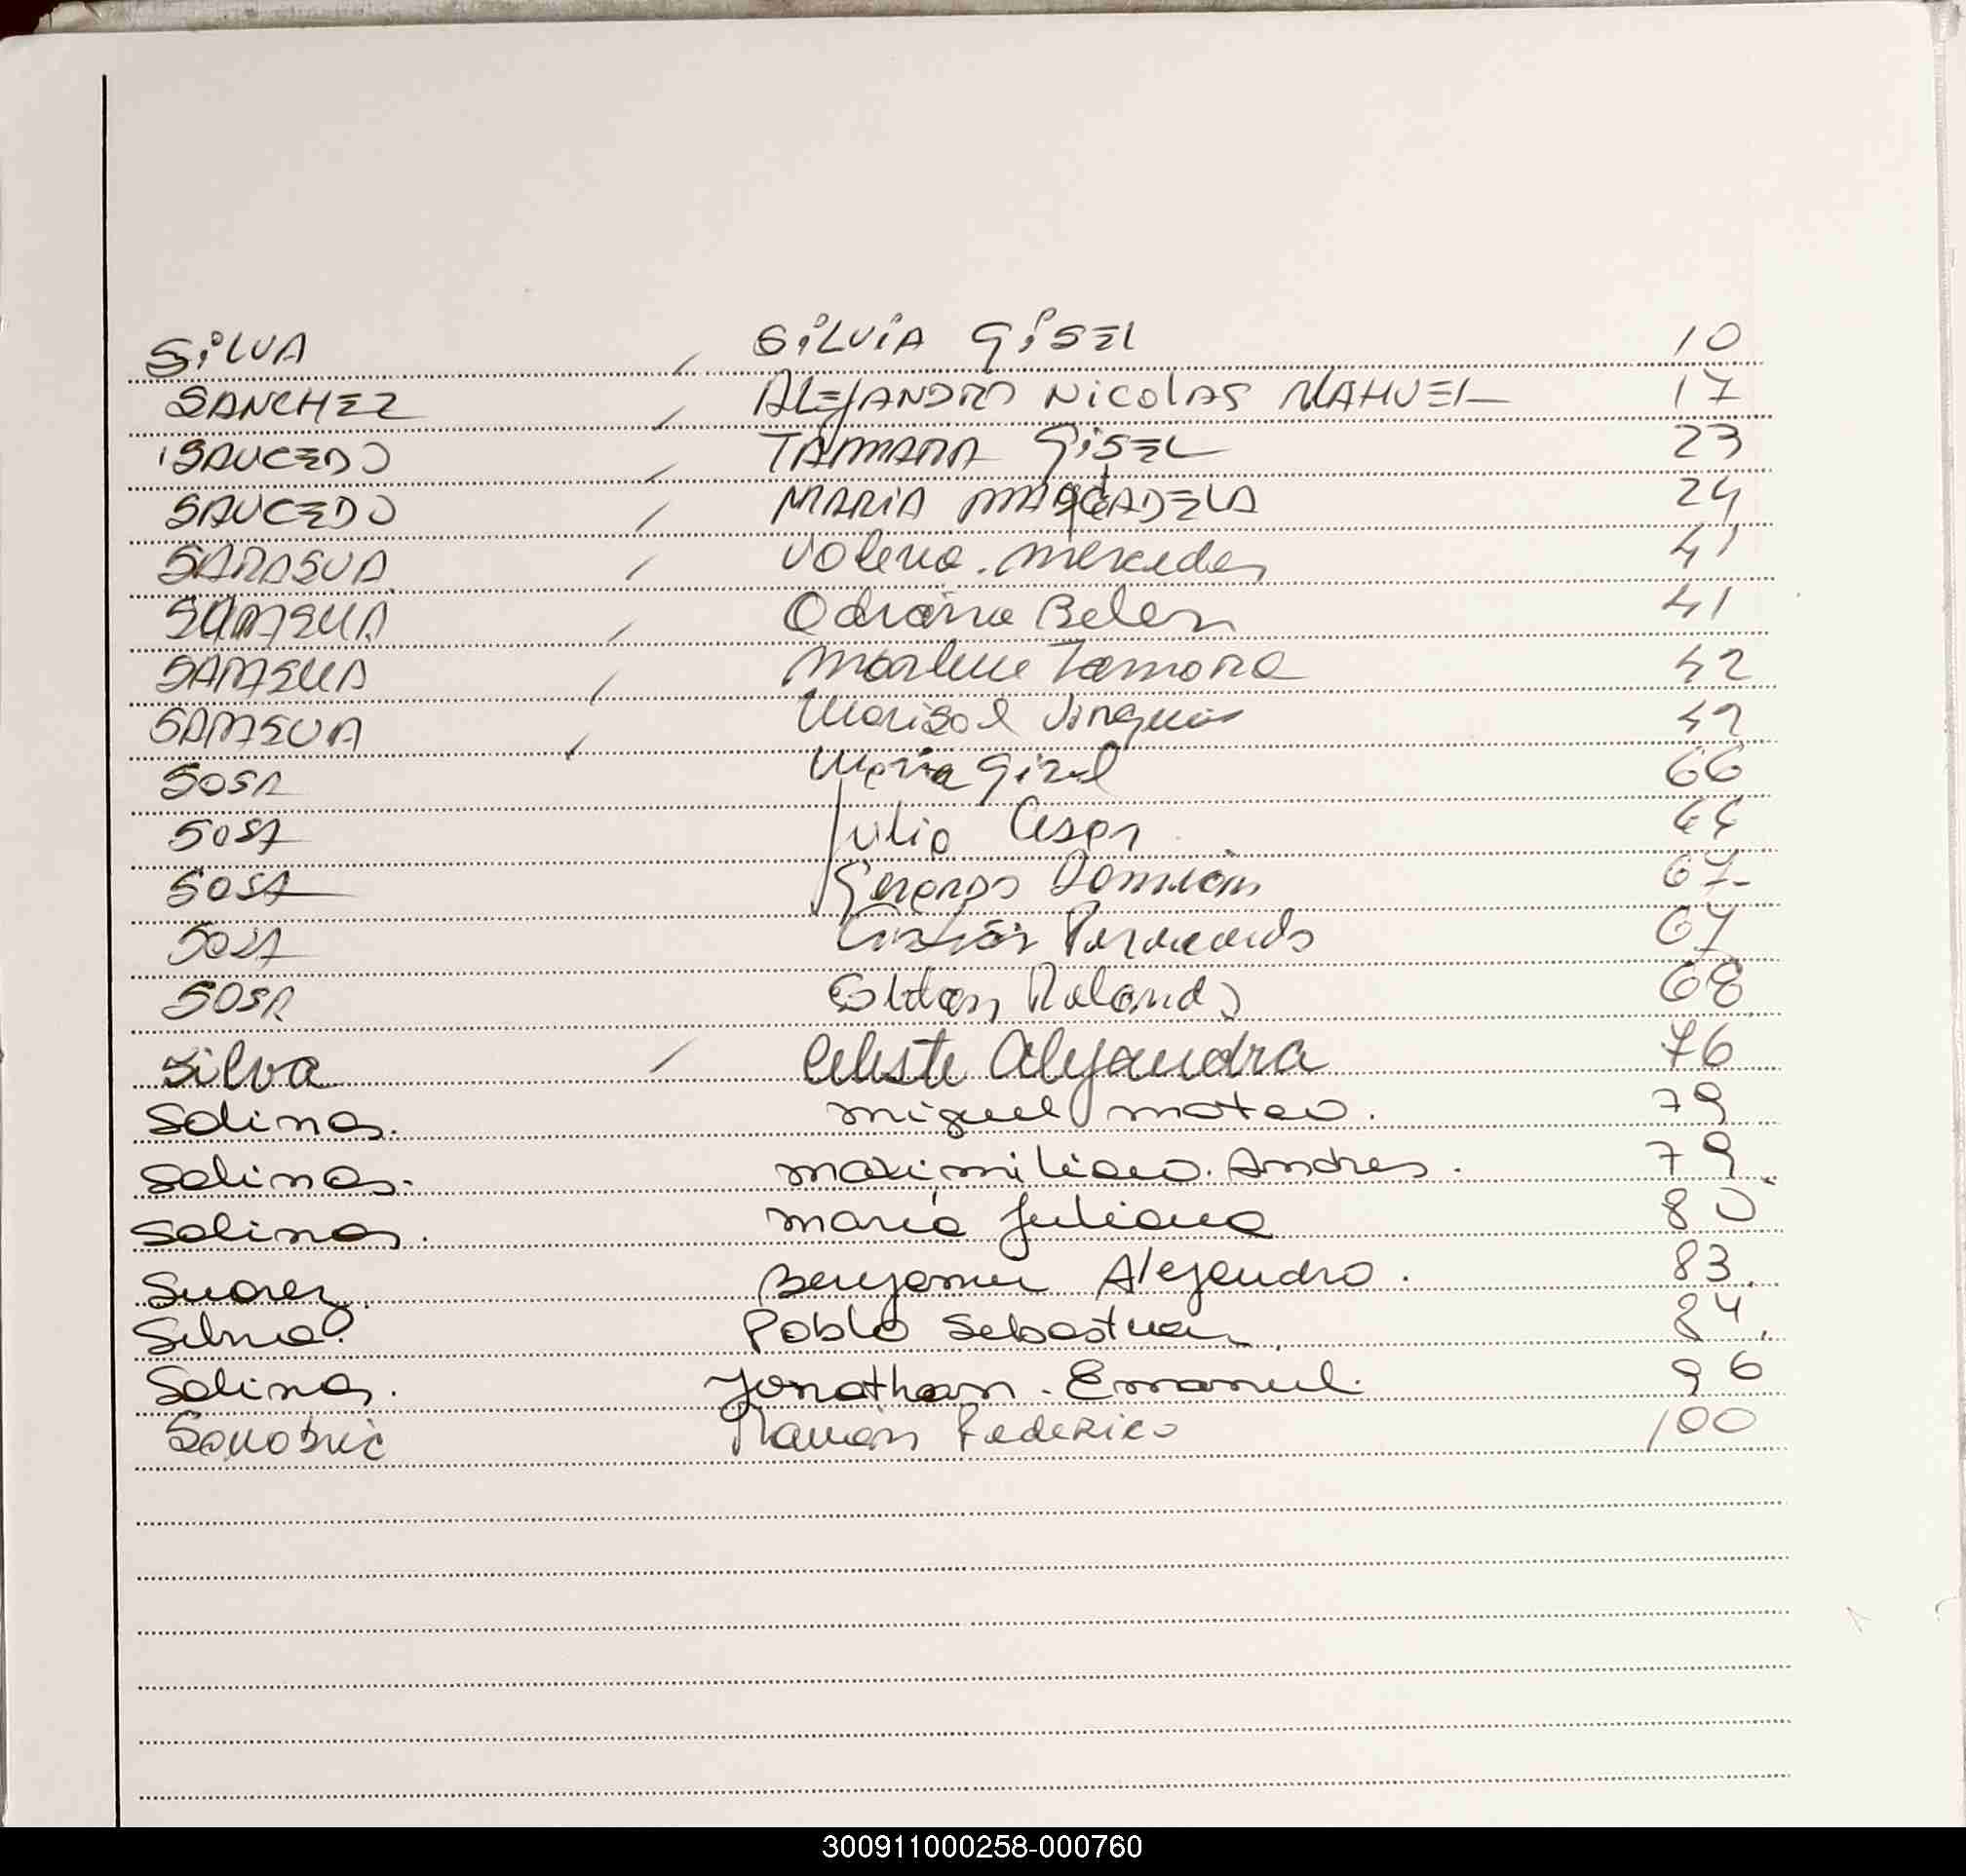 SILVA , SILVIA GISEL 10
SANCHEZ , ALEJANDRO NICOLAS NAHUEL 17
SAUCEDO , TAMARA GISEL 23
SAUCEDO , MARIA 24
SARASUA , Valeria. Mercedes 41
SARASUA , Adriana Belen 41
SARASUA , Marlene Tamara 42
SARASUA , Marisol Virginia 42
SOSA Maria Gisel 66
SOSA Julio Cesar 66
SOSA Gerardo Damian 67
SOSA Cristian Fernando 67
SOSA Rolando 68
Silva , Celeste Alejandra 76
Salinas. Miguel Mateo. 79
Salinas. Maximiliano. Andres. 79
Salinas. Maria Juliana 80
Suarez. Benjamin Alejandro. 83.
Silva. Pablo Sebastian 84.
Salinas. Jonathan. Emanuel. 96
Ramón Federico 100
300911000258-000760